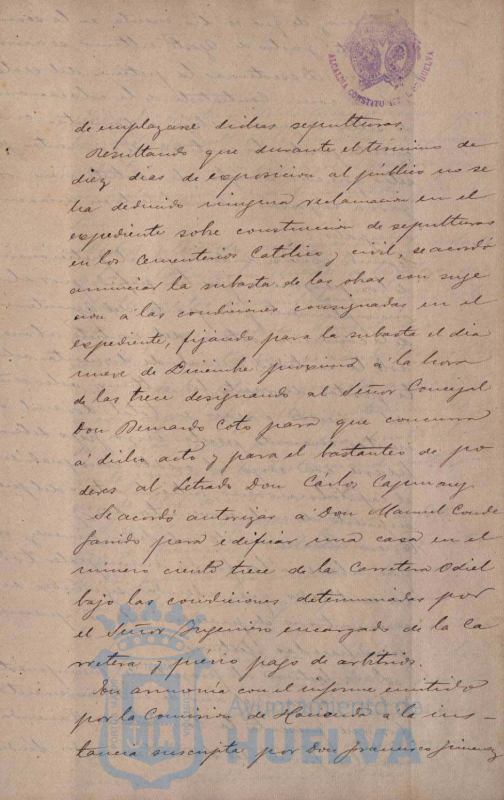 ALCALDIA CONSTITUCIONAL DE HUELVA
de emplazarse dichas sepulturas.
Resultando que durante el término de
diez dias de exposicion al público no se
ha deducido ninguna reclamacion en el
expediente sobre construccion de sepulturas
en los Cementerios Católico y civil, se acordó
anunciar la subasta de las obras con suje
cion á las condiciones consignadas en el
expediente, fijando para la subasta el dia
nueve de Diciembre proximo á la hora
de las trece designando al Señor Concejal
Don Bernardo Coto para que concurra
á dicho acto y para el bastanteo de po
deres al Letrado Don Cárlos Capmany.
Se acordó autorizar á Don Manuel Conde
Garrido para edificar una casa en el
número ciento trece de la Carretera Odiel
bajo las condiciones determinadas por
el Señor Ingeniero encargado de la Ca
rretera y prévio pago de arbitrios.
En armonía con el informe emitido
por la Comision de Hacienda á la ins-
tancia suscripta por Don Francisco Jimenez
Ayuntamiento de
HUELVA